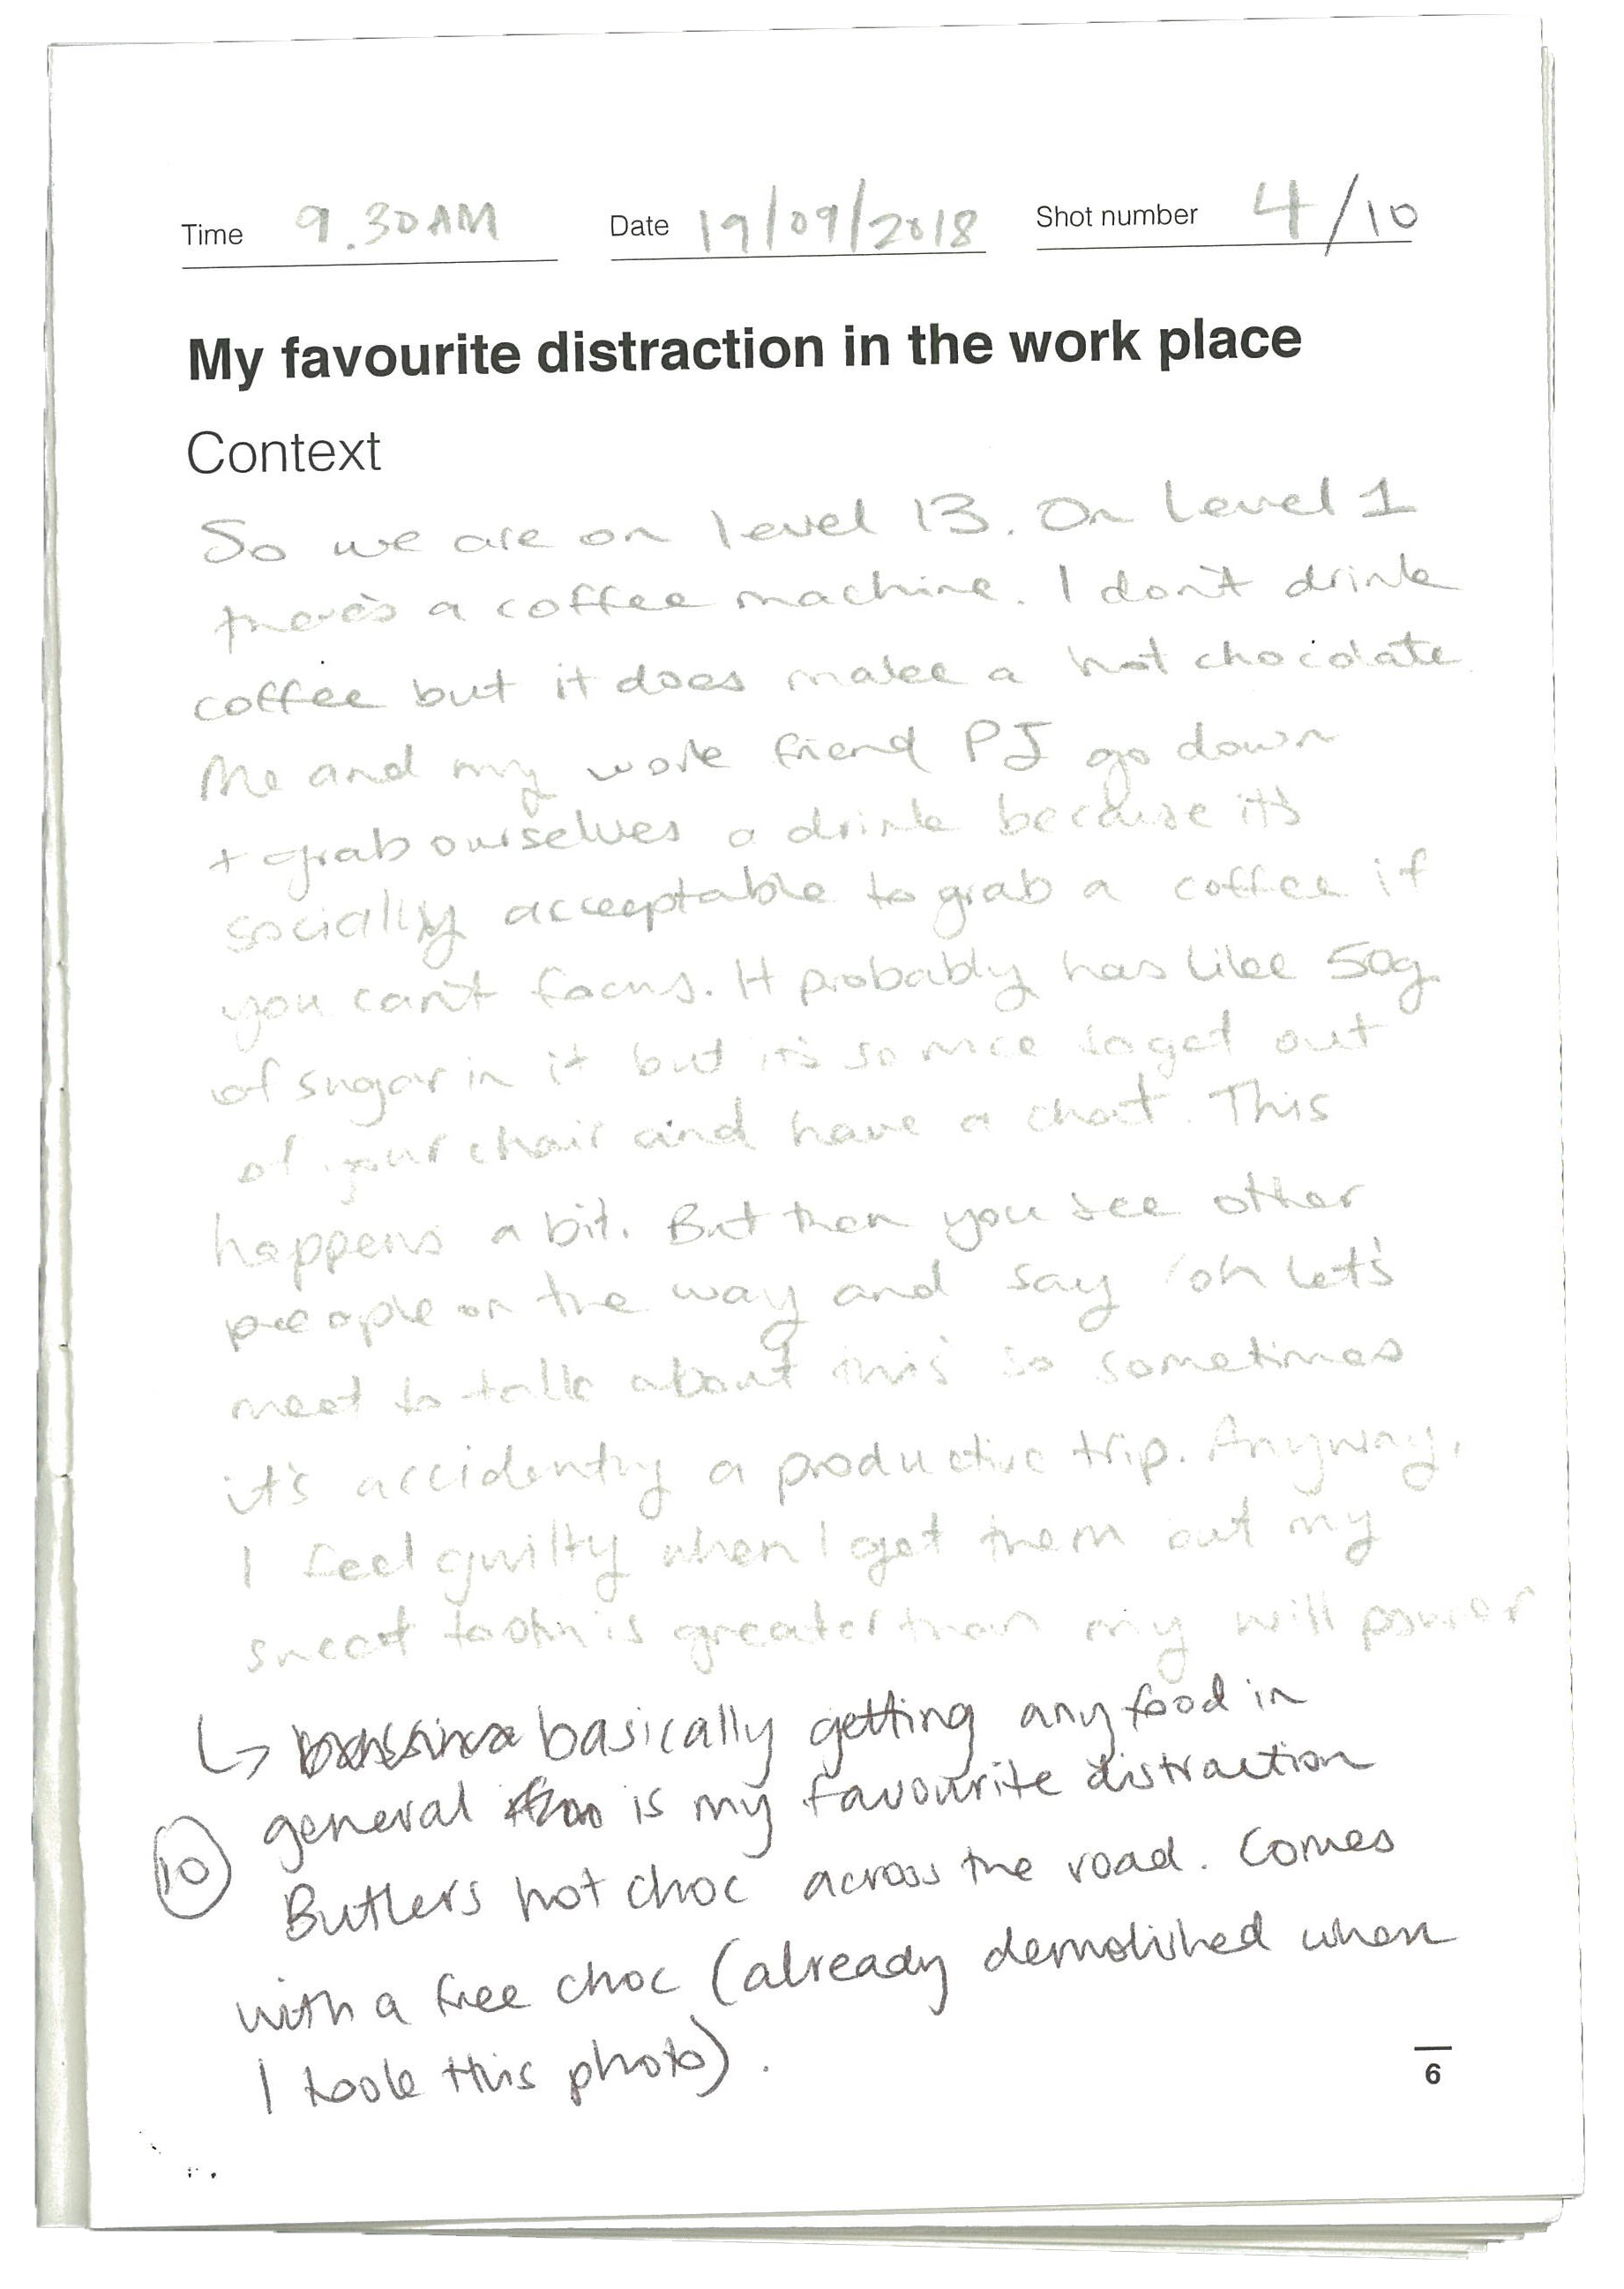 Time 9.30AM Date 19/09/2018 Shot number 4/10
My favourite distraction in the work place
Context
So we are on level 13. On Level 1
there's a coffee machine. I don't drink
coffee but it does make a hot chocolate
Me and my work friend PJ go down
+ grab ourselves a drink because it's
socially acceptable to grab a coffee if
you can't focus. It probably has like 50g
of sugar in it but it's so nice to get out
of your chair and have a chat. This
happens a bit. But then you see other
people on the way and say 'oh let's
meet to talk about this' so sometimes
it's accidently a productive trip. Anyway,
I feel guilty when I get them but my
sweet tooth is greater than my will power
↳ basically getting any food in
general is my favourite distraction
10 Butlers hot choc across the road. Comes
with a free choc (already demolished when
I took this photo).
6